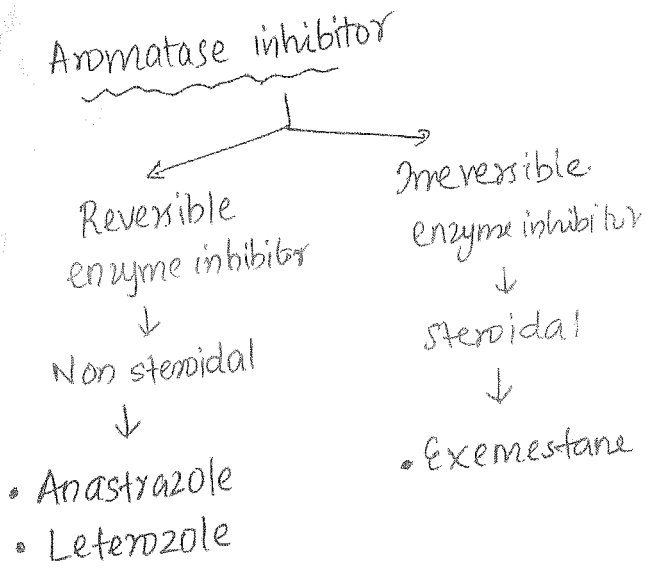 Aromatase inhibitor
Reversible
enzyme inhibitor
↓
Non steroidal
↓
• Anastrazole
• Leterozole
Irreversible
enzyme inhibitor
↓
Steroidal
↓
• Exemestane